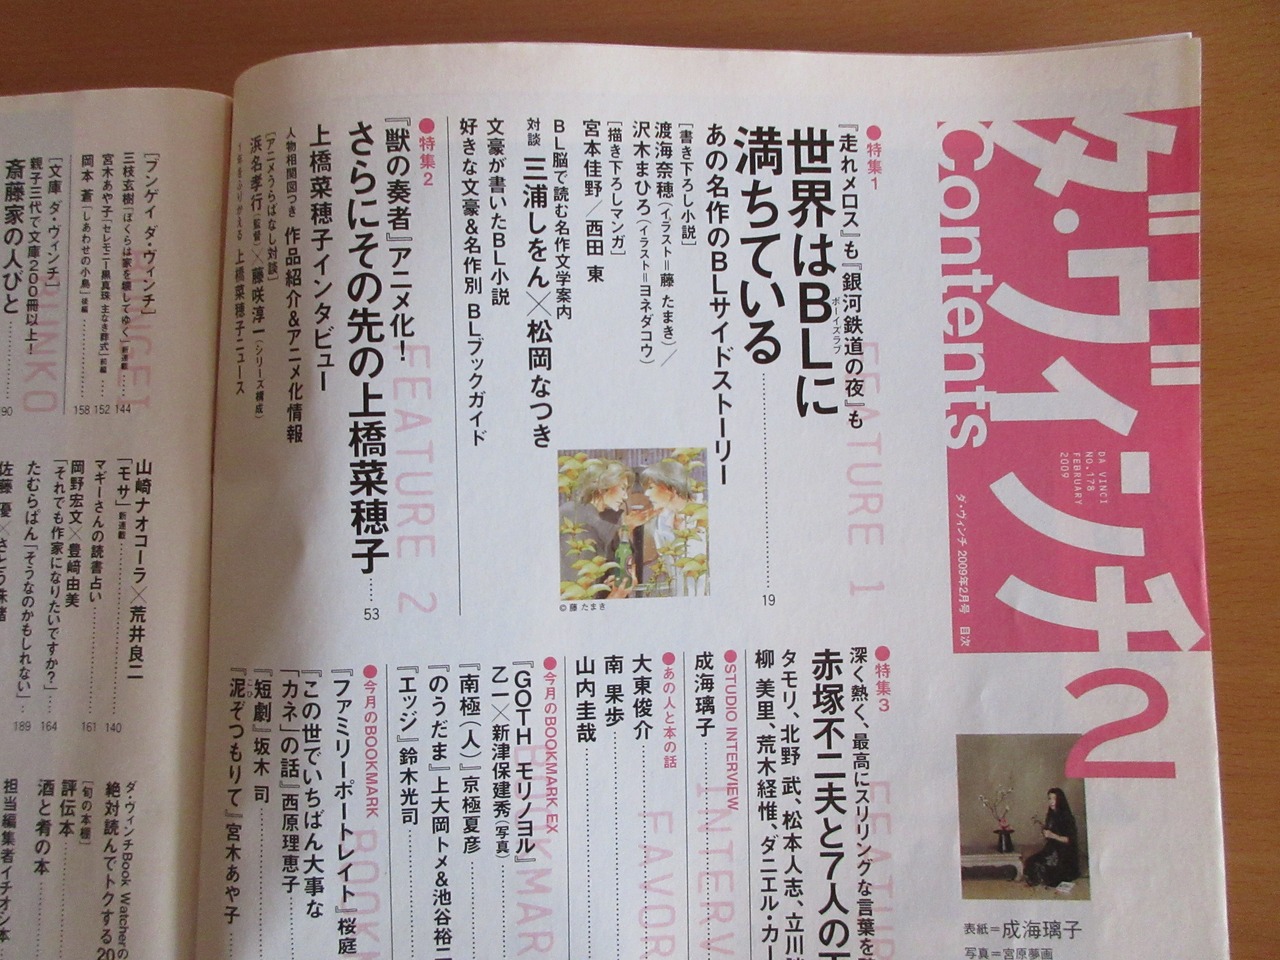 ダ・ヴィンチ
2
contents
DA VINCI
NO.178
FEBRUARY
2009
ダ・ヴィンチ 2009年2月号 目次
表紙=成海璃子
写真=宮原夢画
●特集1
FEATURE 1
『走れメロス』も『銀河鉄道の夜』も
世界はBLに
ボーイズラブ
満ちている
19
あの名作のBLサイドストーリー
[書き下ろし小説]
渡海奈穂(イラスト=藤 たまき)/
沢木まひろ(イラスト=ヨネダコウ)
[描き下ろしマンガ]
宮本佳野/西田 東
BL脳で読む名作文学案内
対談 三浦しをん×松岡なつき
文豪が書いたBL小説
好きな文豪&名作別 BLブックガイド
©藤 たまき
●特集2
FEATURE 2
『獣の奏者』アニメ化!
さらにその先の上橋菜穂子
53
上橋菜穂子インタビュー
人物相関図つき 作品紹介&アニメ化情報
[アニメうらばなし対談]
浜名孝行(監督)×藤咲淳一(シリーズ構成)
上橋菜穂子ニュース
●特集3
深く熱く、最高にスリリングな言葉を
赤塚不二夫と7人の
タモリ、北野 武、松本人志、立川
柳 美里、荒木経惟、ダニエル・カー
●STUDIO INTERVIEW
INTERV
成海璃子
●あの人と本の話
FAVOR
大東俊介
南 果歩
山内圭哉
●今月のBOOKMARK EX
『GOTH モリノヨル』
乙一×新津保建秀(写真)
『南極(人)』京極夏彦
『のうだま』上大岡トメ&池谷裕二
『エッジ』鈴木光司
●今月のBOOKMARK
『ファミリーポートレイト』桜庭
『この世でいちばん大事な
「カネ」の話』西原理恵子
『短劇』坂木 司
『泥ぞつもりて』宮木あや子
『ブンゲイ ダ・ヴィンチ』
三枝玄樹「ぼくらは家を壊してゆく」新連載
144
宮木あや子「セレモニー黒真珠 主なき葬式」前編
152
岡本 蒼「しあわせの小鳥」後編
158
[文庫 ダ・ヴィンチ]
BUNKO
親子三代で文庫200冊以上!
斎藤家の人びと
190
山崎ナオコーラ×荒井良二
「モサ」新連載
140
マギーさんの読書占い
161
岡野宏文×豊﨑由美
「それでも作家になりたいですか?」
164
たむらぱん「そうなのかもしれない」
189
ダ・ヴィンチBook Watcherの
絶対読んでトクする20
[旬の本棚]
評伝本
酒と肴の本
担当編集者イチオシ本